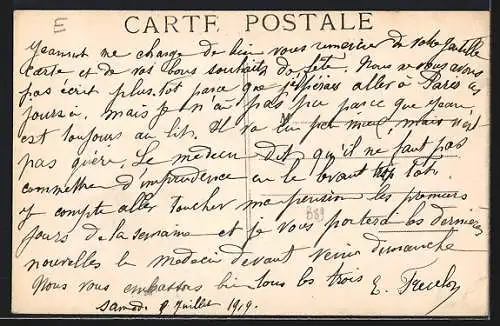 E
CARTE POSTALE
Jeannot me charge de bien vous remercier de votre gentille
carte et de vos bons souhaits de fête. Nous ne vous avons
pas écrit plus tot parce que j'espérais aller à Paris ces
jours ci. mais je n'ai pas pu parce que Jean
est toujours au lit. Il va un peu mieux, mais n'est
pas guéri. Le medecin dit qu'il ne faut pas
commettre d'imprudence en le levant trop tot.
J'y compte aller toucher ma pension les premiers
jours de la semaine et je vous porterai les dernieres
nouvelles le medecin devant venir dimanche
Nous vous embrassons bien tous les trois E.
Samedi Juillet 1919.
B89